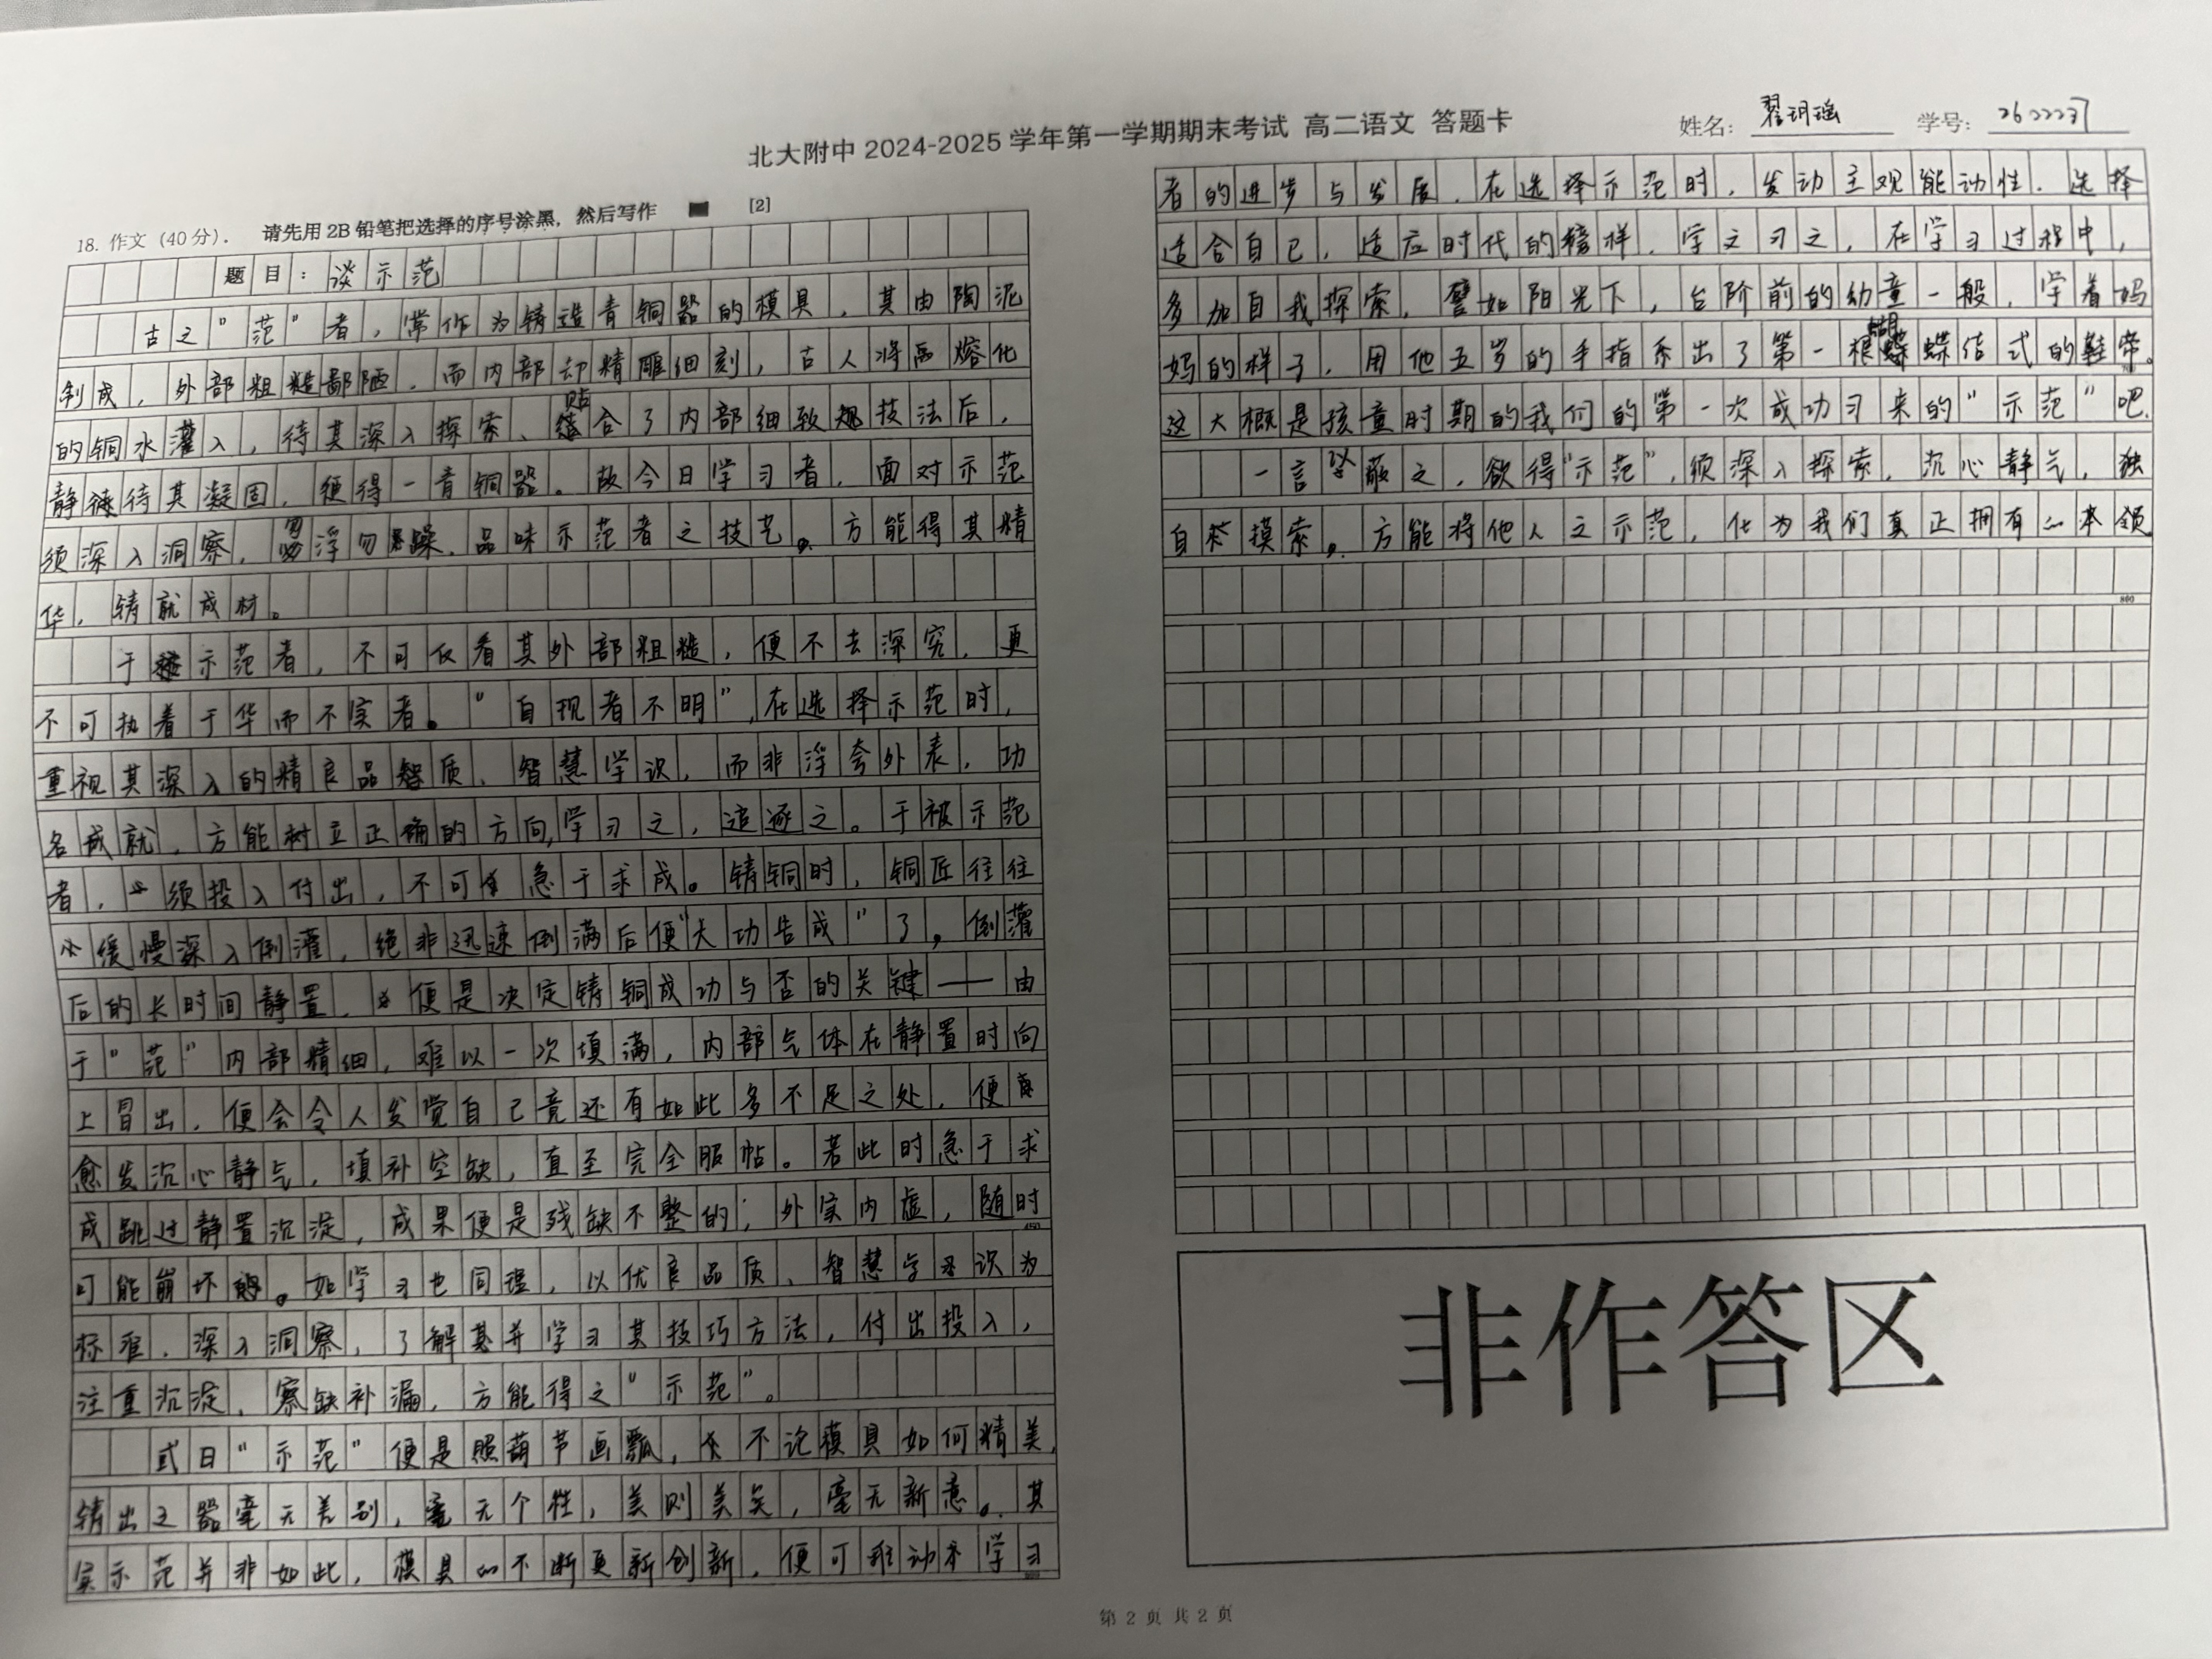 北大附中 2024-2025 学年第一学期期末考试 高二语文 答题卡
姓名: 翟玥瑶 学号: 2622237
18. 作文（40分）. 请先用 2B 铅笔把选择的序号涂黑，然后写作 [2]
题目：谈示范
古之“范”者，常作为铸造青铜器的模具，其由陶泥
制成，外部粗糙鄙陋，而内部却精雕细刻，古人将熔化
的铜水灌入，待其深入探索、贴合了内部细致技法后，
静待其凝固，便得一青铜器。故今日学习者，面对示范
须深入洞察，勿浮勿躁，品味示范者之技艺。方能得其精
华，铸就成材。
于示范者，不可仅看其外部粗糙，便不去深究，更
不可执着于华而不实者。“自现者不明”，在选择示范时，
重视其深入的精良品质、智慧学识，而非浮夸外表，功
名成就，方能树立正确的方向，学习之，追逐之。于被示范
者，须投入付出，不可急于求成。铸铜时，铜匠往往
缓慢深入倒灌，绝非迅速倒满后便“大功告成”了，倒灌
后的长时间静置，便是决定铸铜成功与否的关键——由
于“范”内部精细，难以一次填满，内部气体在静置时向
上冒出，便会令人发觉自己竟还有如此多不足之处，便
愈发沉心静气，填补空缺，直至完全服帖。若此时急于求
成跳过静置沉淀，成果便是残缺不整的；外实内虚，随时
450
可能崩坏。如学习也同理，以优良品质、智慧学识为
标准，深入洞察，了解并学习其技巧方法，付出投入，
注重沉淀，察缺补漏，方能得之“示范”。
或曰“示范”便是照葫芦画瓢，不论模具如何精美，
铸出之器毫无差别，毫无个性，美则美矣，毫无新意。其
实示范并非如此，模具的不断更新创新，便可推动学习
600
者的进步与发展，在选择示范时，发动主观能动性，选择
适合自己，适应时代的榜样，学之习之，在学习过程中，
多加自我探索，譬如阳光下，台阶前的幼童一般，学着妈
妈的样子，用他五岁的手指系出了第一根蝴蝶结式的鞋带。
这大概是孩童时期的我们的第一次成功习来的“示范”吧。
一言以蔽之，欲得“示范”，须深入探索，沉心静气，独
自摸索。方能将他人之示范，化为我们真正拥有的本领。
800
非作答区
第 2 页 共 2 页